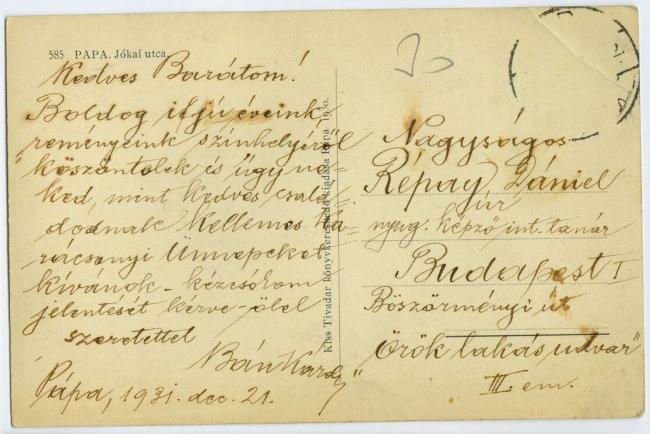 585 PÁPA. Jókai utca
Kedves Barátom!
Boldog ifjú éveink,
reményeink színhelyéről
köszöntelek és úgy ne-
ked, mint kedves csalá-
dodnak kellemes ka-
rácsonyi Ünnepeket
kívánok - kézcsókom
jelentését kérve - ölel
szeretettel
Bán Károly
Pápa, 1931. dec. 21.
Kiss Tivadar könyvkereskedő kiadása Pápa 1930.
Nagyságos
Répay Dániel
úr
nyug. képző int. tanár
Budapest I
Böszörményi út
"Örök lakás udvar"
III em.